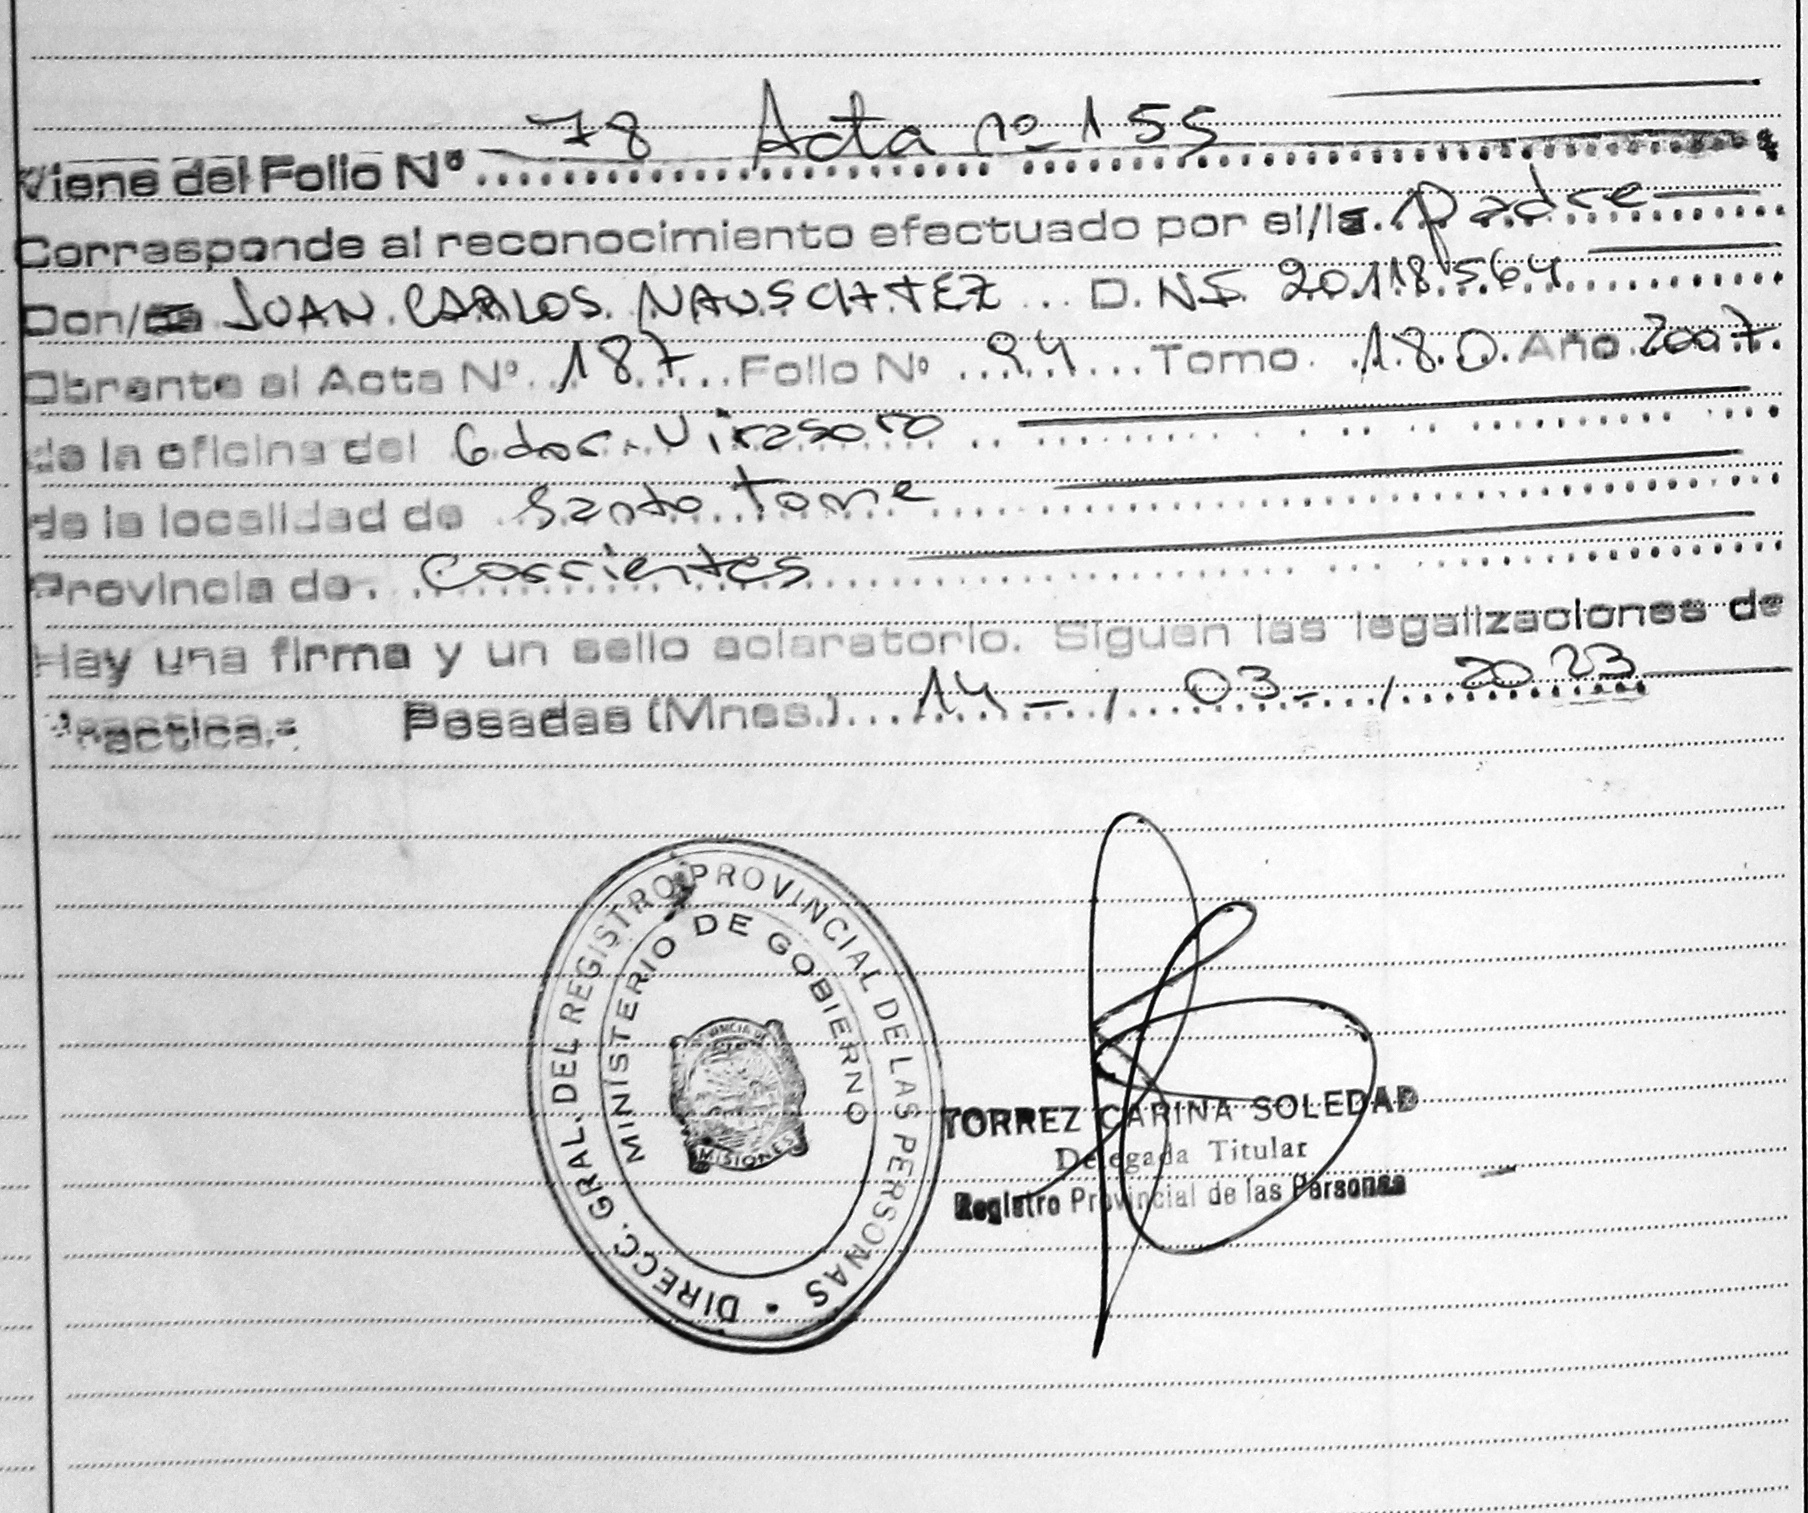 78 Acta nº 155
Viene del Folio Nº
Corresponde al reconocimiento efectuado por el/la padre
Don/ña JUAN CARLOS NAUSCHTEZ D.N.I. 20.118.564
Obrante al Acta Nº 187 Folio Nº 94 Tomo 180 Año 2007
de la oficina del Gdor. Virasoro
de la localidad de Santo Tome
Provincia de Corrientes
Hay una firma y un sello aclaratorio. Siguen las legalizaciones de
Practica.= Posadas (Mnes.) 14 - / 03 - / 2023
DIRECC. GRAL. DEL REGISTRO PROVINCIAL DE LAS PERSONAS •
MINISTERIO DE GOBIERNO
PROVINCIA DE
MISIONES
TORREZ CARINA SOLEDAD
Delegada Titular
Registro Provincial de las Personas